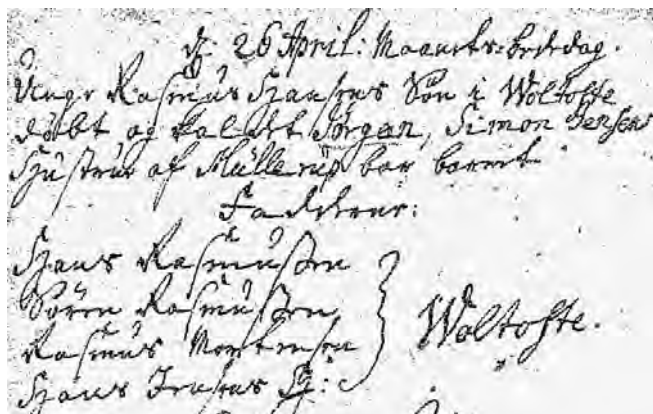 d: 26 April: Maanets-Bededag.
Unge Rasmus Hansens Søn i Woltofte
døbt og kaldet Jörgen, Simon Jensens
Hustrue af Mullerup bar barnet
Fadderne:
Hans Rasmussen
Sören Rasmussen
Rasmus Mortensen
Hans Jensens
Woltofte.